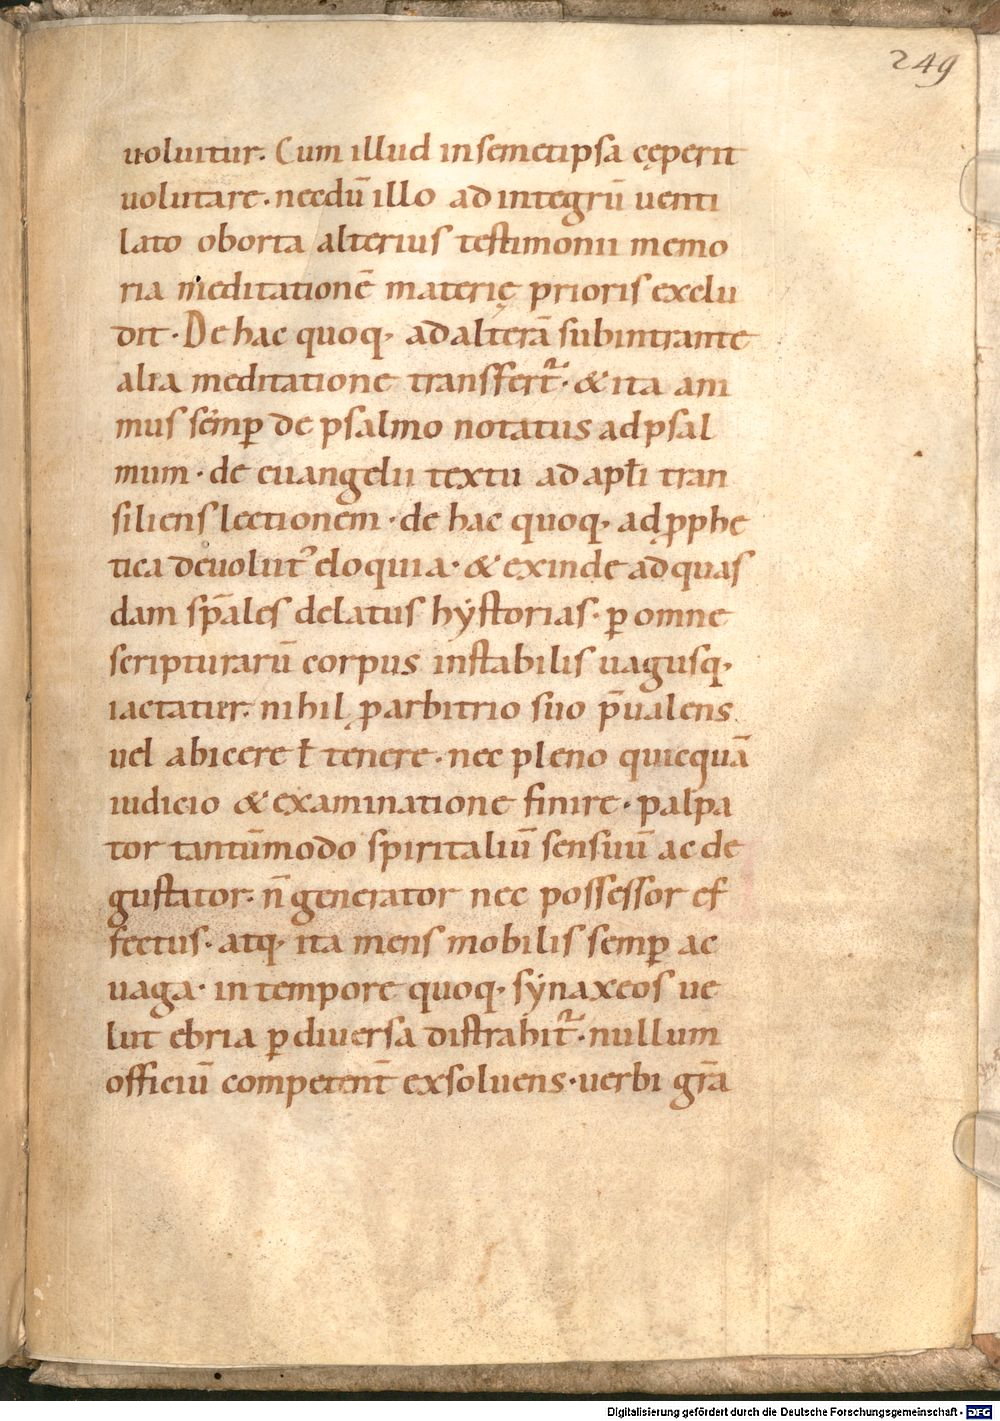 249
uoluitur. Cum illud insemetipsa cęperit
uolutare · necdū illo ad integrū uenti
lato oborta alterius testimonii memo
ria meditationē materię prioris exclu
dit · De hac quoq; ad alterā subintrante
alia meditatione transfert᷑ · & ita ani
mus semp̱ de psalmo notatus ad psal
mum · de euangelii textu ad apłi tran
siliens lectionem · de hac quoq; ad ꝓphe
tica deuoluit᷑ eloquia · & exinde ad quas
dam sp̄ales delatus hẏstorias · ꝑ omne
scripturarū corpus instabilis uagusq;
iactatur. nihil ꝓ arbitrio suo p̄ualens
uel abicere ł tenere · nec pleno quicquā
iudicio & examinatione finire · palpa
tor tantūmodo spiritaliū sensuū ac de
gustator. n̄ generator nec possessor ef
fectus · atq; ita mens mobilis semꝑ ac
uaga · in tempore quoq; sẏnaxeos ue
lut ebria ꝑ diuersa distrahit᷑ · nullum
officiū competent̄ exsoluens · uerbi gr̄a
Digitalisierung gefördert durch die Deutsche Forschungsgemeinschaft - DFG